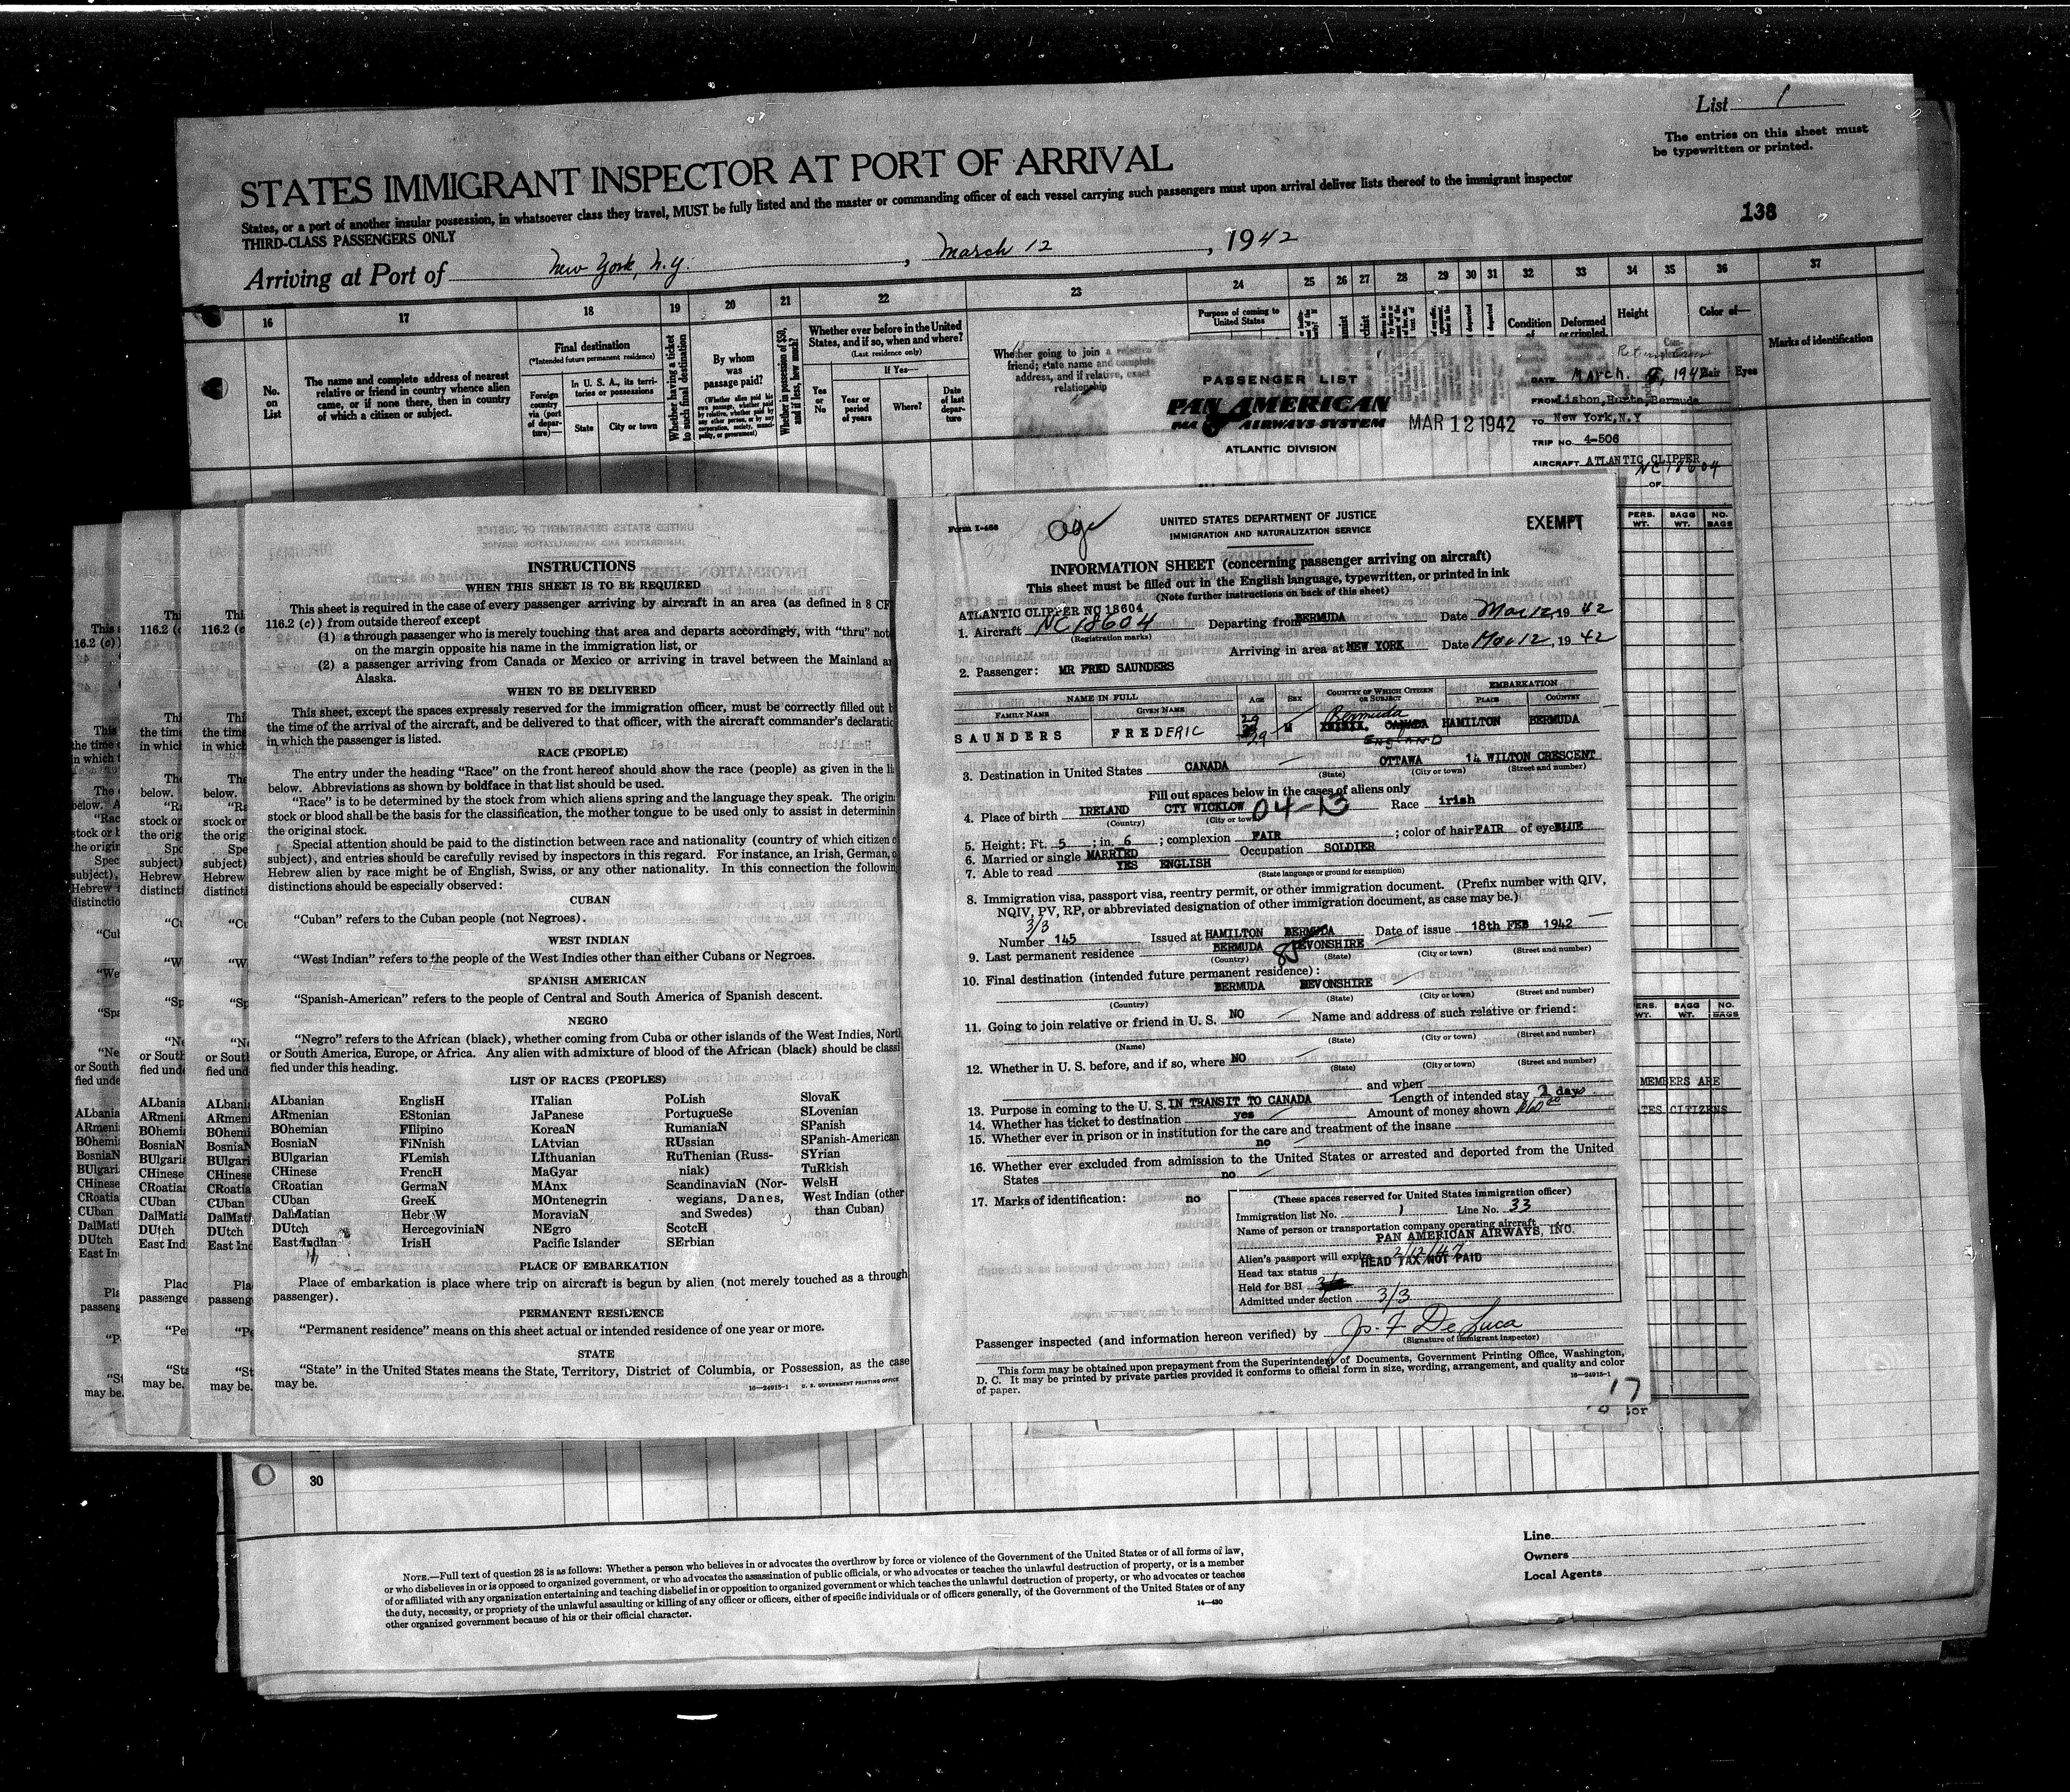 List 1
The entries on this sheet must
be typewritten or printed.
STATES IMMIGRANT INSPECTOR AT PORT OF ARRIVAL
States, or a port of another insular possession, in whatsoever class they travel, MUST be fully listed and the master or commanding officer of each vessel carrying such passengers must upon arrival deliver lists thereof to the immigrant inspector
THIRD-CLASS PASSENGERS ONLY
138
Arriving at Port of New York, N.Y. , March 12 , 1942
16 17 18 19 20 21 22 23 24 25 26 27 28 29 30 31 32 33 34 35 36 37
No. on List
The name and complete address of nearest relative or friend in country whence alien came, or if none there, then in country of which a citizen or subject.
Final destination
(*Intended future permanent residence)
Foreign country via (port of departure)—
In U. S. A., its territories or possessions
State
City or town
Whether having a ticket to such final destination
By whom was passage paid?
Whether in possession of $50, and if less, how much?
Whether ever before in the United States, and if so, when and where?
(Last residence only)
If Yes—
Yes or No
Year or period of years
Where?
Date of last departure
Whether going to join a relative or friend; state name and complete address, and if relative, exact relationship
Purpose of coming to United States
Condition of
Deformed or crippled.
Height
Color of—
Hair Eyes
Marks of identification
PASSENGER LIST
PAN AMERICAN
PAA AIRWAYS SYSTEM
ATLANTIC DIVISION
MAR 12 1942
DATE March
FROM Lisbon, Horta, Bermuda
TO New York, N.Y
TRIP NO. 4-506
AIRCRAFT ATLANTIC CLIPPER
NC 18604
OF
PERS. WT. BAGG WT. NO. BAGS
MEMBERS ARE
TES CITIZENS
INSTRUCTIONS
WHEN THIS SHEET IS TO BE REQUIRED
This sheet is required in the case of every passenger arriving by aircraft in an area (as defined in 8 CF
116.2 (c)) from outside thereof except
(1) a through passenger who is merely touching that area and departs accordingly, with "thru" not
on the margin opposite his name in the immigration list, or
(2) a passenger arriving from Canada or Mexico or arriving in travel between the Mainland a
Alaska.
WHEN TO BE DELIVERED
This sheet, except the spaces expressly reserved for the immigration officer, must be correctly filled out b
the time of the arrival of the aircraft, and be delivered to that officer, with the aircraft commander's declaratio
in which the passenger is listed.
RACE (PEOPLE)
The entry under the heading "Race" on the front hereof should show the race (people) as given in the li
below. Abbreviations as shown by boldface in that list should be used.
"Race" is to be determined by the stock from which aliens spring and the language they speak. The origin
stock or blood shall be the basis for the classification, the mother tongue to be used only to assist in determinin
the original stock.
Special attention should be paid to the distinction between race and nationality (country of which citizen o
subject), and entries should be carefully revised by inspectors in this regard. For instance, an Irish, German, o
Hebrew alien by race might be of English, Swiss, or any other nationality. In this connection the followin
distinctions should be especially observed:
CUBAN
"Cuban" refers to the Cuban people (not Negroes).
WEST INDIAN
"West Indian" refers to the people of the West Indies other than either Cubans or Negroes.
SPANISH AMERICAN
"Spanish-American" refers to the people of Central and South America of Spanish descent.
NEGRO
"Negro" refers to the African (black), whether coming from Cuba or other islands of the West Indies, Nort
or South America, Europe, or Africa. Any alien with admixture of blood of the African (black) should be classi
fied under this heading.
LIST OF RACES (PEOPLES)
ALbanian EnglisH ITalian PoLish SlovaK
ARmenian EStonian JaPanese PortugueSe SLovenian
BOhemian FIlipino KoreaN RumaniaN SPanish
BosniaN FiNnish LAtvian RUssian SPanish-American
BUlgarian FLemish LIthuanian RuThenian (Russ- SYrian
CHinese FrencH MaGyar niak) TuRkish
CRoatian GermaN MAnx ScandinaviaN (Nor- WelsH
CUban GreeK MOntenegrin wegians, Danes, West Indian (other
DalMatian HebreW MoraviaN and Swedes) than Cuban)
DUtch HercegoviniaN NEgro ScotcH
East Indian IrisH Pacific Islander SErbian
PLACE OF EMBARKATION
Place of embarkation is place where trip on aircraft is begun by alien (not merely touched as a through
passenger).
PERMANENT RESIDENCE
"Permanent residence" means on this sheet actual or intended residence of one year or more.
STATE
"State" in the United States means the State, Territory, District of Columbia, or Possession, as the case
may be.
16—24915-1 U. S. GOVERNMENT PRINTING OFFICE
Form I-466
UNITED STATES DEPARTMENT OF JUSTICE
IMMIGRATION AND NATURALIZATION SERVICE
EXEMPT
INFORMATION SHEET (concerning passenger arriving on aircraft)
This sheet must be filled out in the English language, typewritten, or printed in ink
(Note further instructions on back of this sheet)
ATLANTIC CLIPPER NC 18604
1. Aircraft NC 18604 Departing from BERMUDA Date Mar 12, 1942
(Registration marks)
Arriving in area at NEW YORK Date Mar 12, 1942
2. Passenger: MR FRED SAUNDERS
NAME IN FULL AGE SEX COUNTRY OF WHICH CITIZEN OR SUBJECT EMBARKATION
FAMILY NAME GIVEN NAME PLACE COUNTRY
SAUNDERS FREDERIC 29 M Bermuda CANADA ENGLAND HAMILTON BERMUDA
3. Destination in United States CANADA OTTAWA 14 WILTON CRESCENT
(State) (City or town) (Street and number)
Fill out spaces below in the cases of aliens only
4. Place of birth IRELAND CTY WICKLOW 04-13 Race irish
(Country) (City or town)
5. Height: Ft. 5 ; in. 6 ; complexion FAIR ; color of hair FAIR of eye BLUE
6. Married or single MARRIED Occupation SOLDIER
7. Able to read YES ENGLISH
(State language or ground for exemption)
8. Immigration visa, passport visa, reentry permit, or other immigration document. (Prefix number with QIV,
NQIV, PV, RP, or abbreviated designation of other immigration document, as case may be.)
3/3
Number 145 Issued at HAMILTON BERMUDA Date of issue 18th FEB 1942
9. Last permanent residence BERMUDA DEVONSHIRE
(Country) (State) (City or town) (Street and number)
10. Final destination (intended future permanent residence):
BERMUDA DEVONSHIRE
(Country) (State) (City or town) (Street and number)
11. Going to join relative or friend in U. S. NO Name and address of such relative or friend:
(Name) (State) (City or town) (Street and number)
12. Whether in U. S. before, and if so, where NO
(State) (City or town) (Street and number)
and when
13. Purpose in coming to the U. S. IN TRANSIT TO CANADA Length of intended stay 2 days
14. Whether has ticket to destination yes Amount of money shown
15. Whether ever in prison or in institution for the care and treatment of the insane
no
16. Whether ever excluded from admission to the United States or arrested and deported from the United
States no
17. Marks of identification: no
(These spaces reserved for United States immigration officer)
Immigration list No. 1 Line No. 33
Name of person or transportation company operating aircraft
PAN AMERICAN AIRWAYS, INC.
Alien's passport will expire 2/12/47
Head tax status HEAD TAX NOT PAID
Held for BSI
Admitted under section 3/3
Passenger inspected (and information hereon verified) by Jos. F De Luca
(Signature of immigrant inspector)
This form may be obtained upon prepayment from the Superintendent of Documents, Government Printing Office, Washington,
D. C. It may be printed by private parties provided it conforms to official form in size, wording, arrangement, and quality and color
of paper.
16—24915-1
17
30
NOTE.—Full text of question 28 is as follows: Whether a person who believes in or advocates the overthrow by force or violence of the Government of the United States or of all forms of law,
or who disbelieves in or is opposed to organized government, or who advocates the assassination of public officials, or who advocates or teaches the unlawful destruction of property, or is a member
of or affiliated with any organization entertaining and teaching disbelief in or opposition to organized government or which teaches the unlawful destruction of property, or who advocates or teaches
the duty, necessity, or propriety of the unlawful assaulting or killing of any officer or officers, either of specific individuals or of officers generally, of the Government of the United States or of any
other organized government because of his or their official character.
14—430
Line
Owners
Local Agents